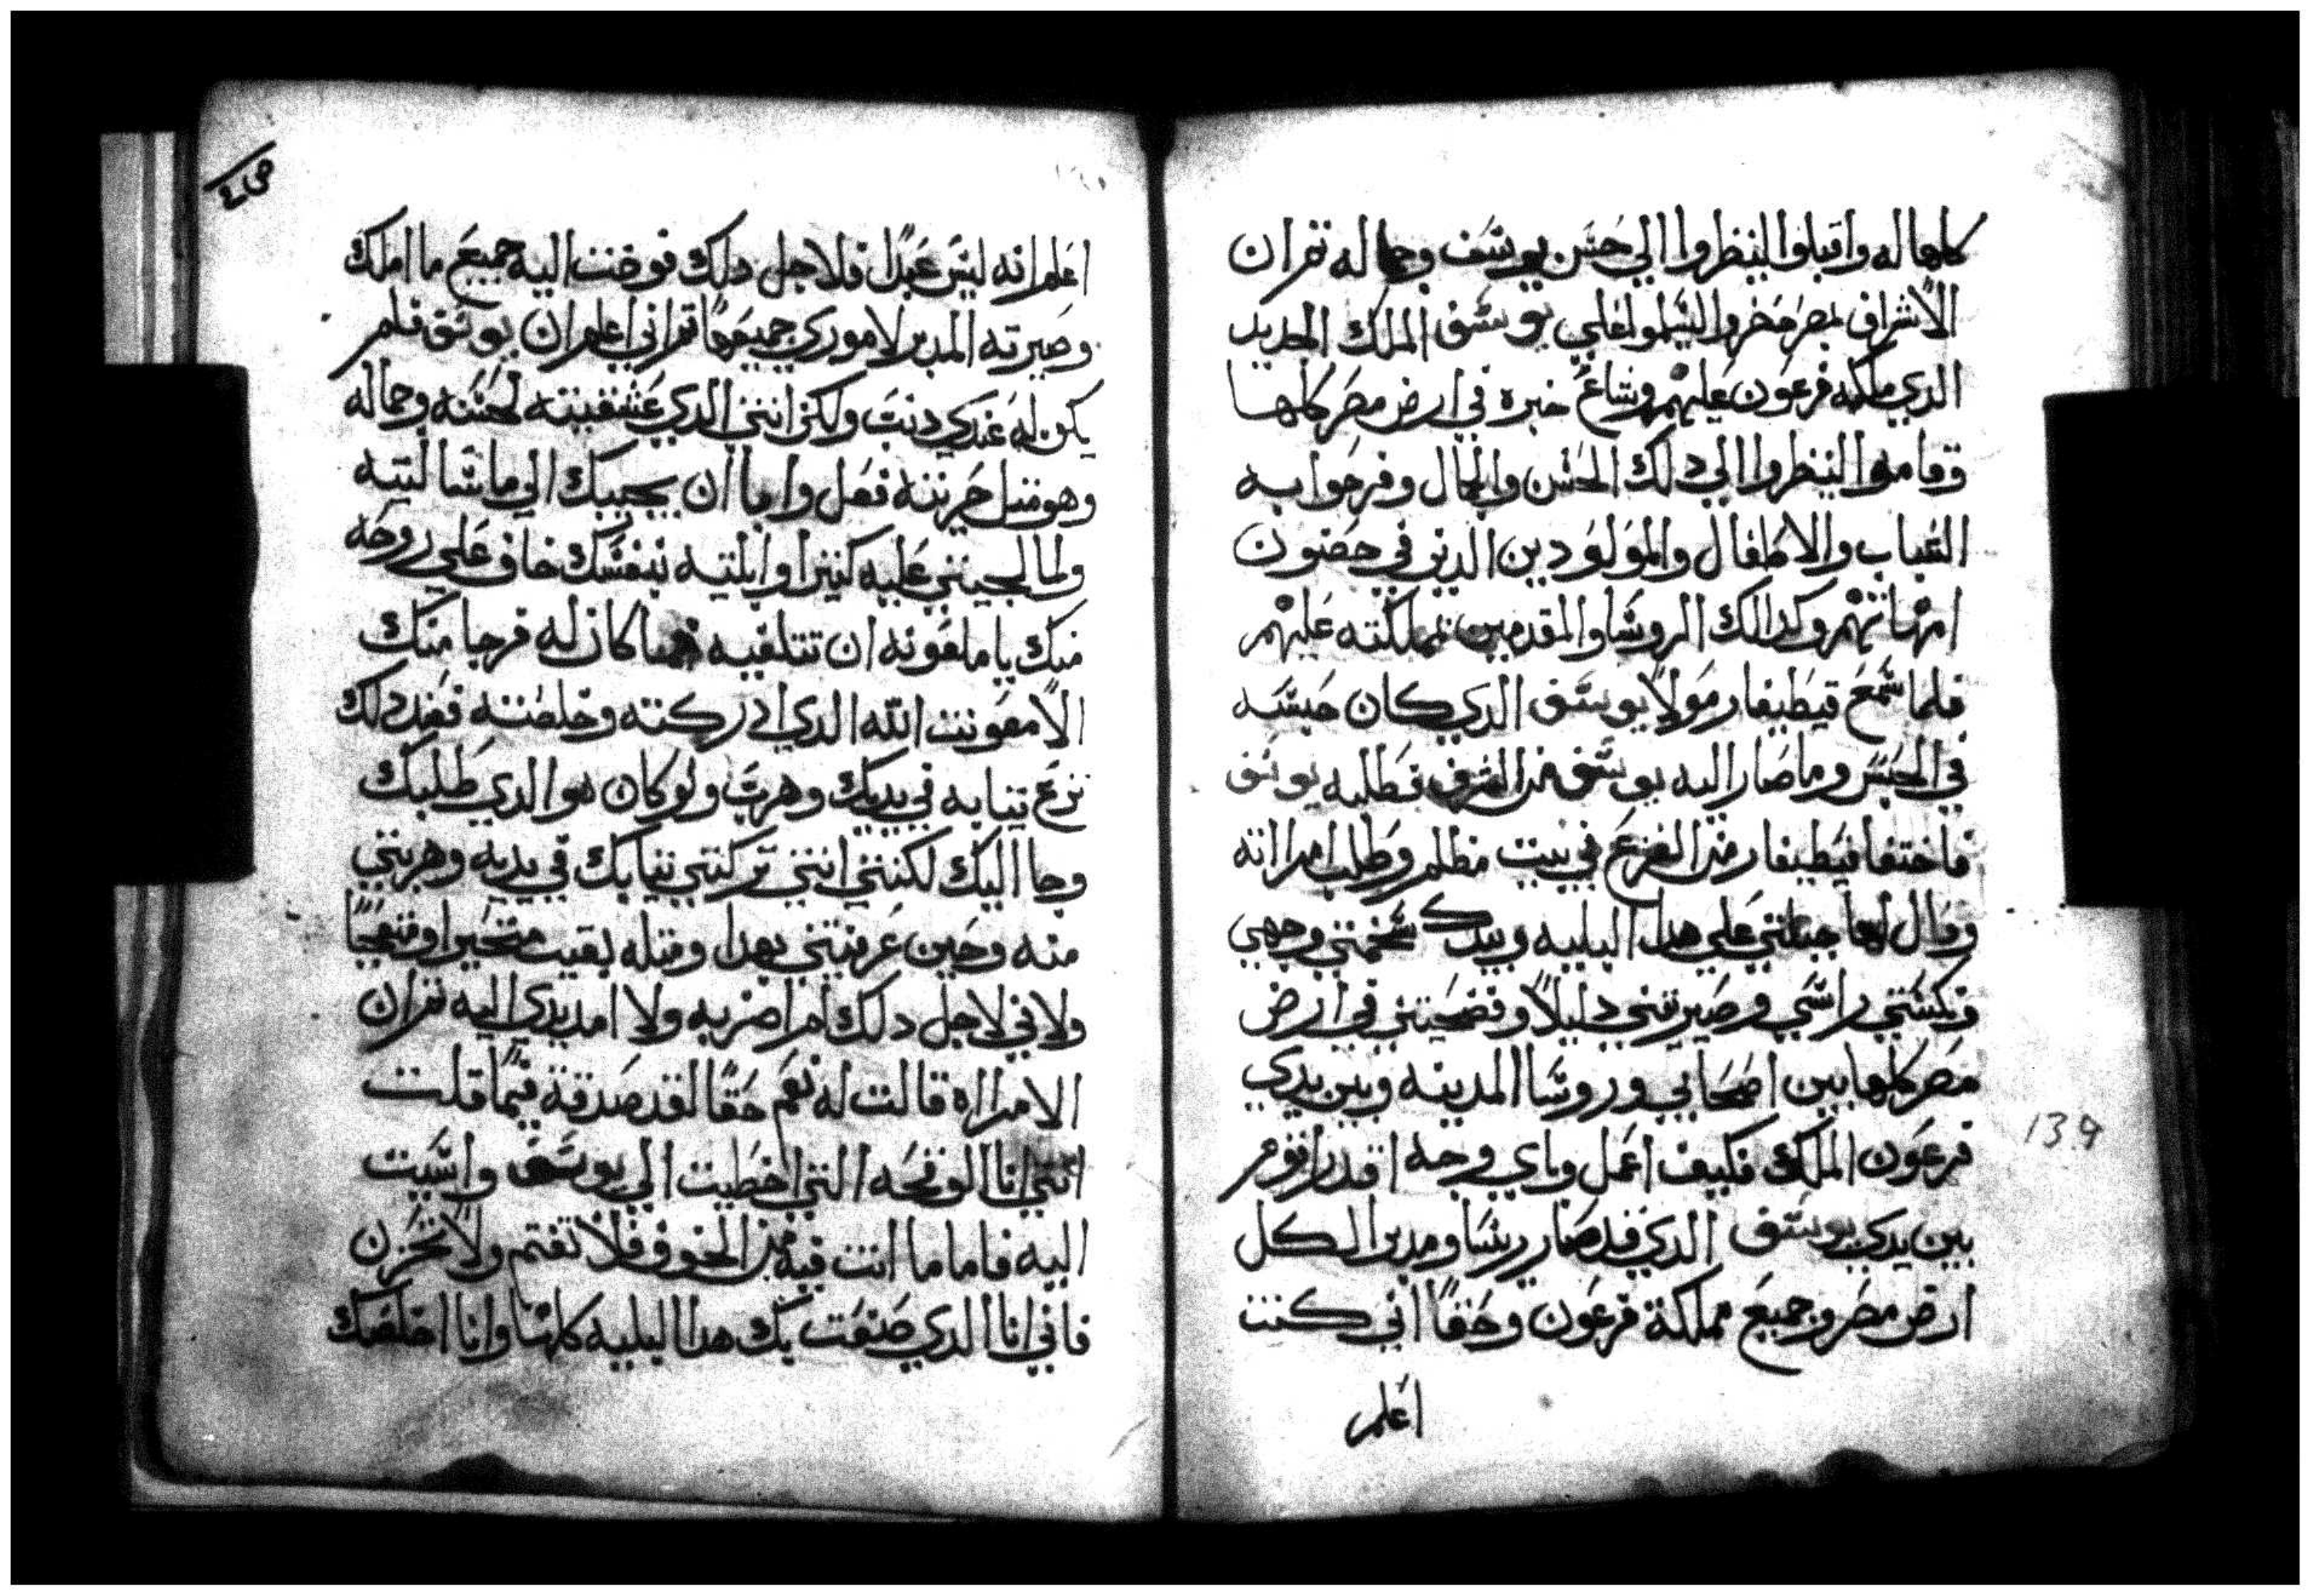 كلها له واقبلوا لينظروا الي حسن يوسف وجماله تم ان
الاشراف بمصر حضروا ليسلموا علي يوسف الملك الجديد
الدي ملكه فرعون عليهم وشاع خبره في ارض مصر كلها
وقاموا لينظروا الي دلك الحسن والجمال وفرحوا به
الشباب والاطفال والمولودين الدين في حضون
امهاتهم وكدالك الروسا والمقدمين مملكته عليهم
فلما سمع قيطيفار مولا يوسف الدي كان حبسه
في الحبس وما صار اليه يوسف من الشرف فطلبه يوسف
فاختفا قيطيفار من الفزع في بيت مظلم وطلب امراته
وقال لها جبلتني علي هدا البليه وبيدك سخمتي وجهي
ونكستي راسي وصيرتني دليلا وفضحيتني في ارض
مصر كلها بين اصحابي وروسا المدينه وبين يدي
فرعون الملك فكيف اعمل وباي وجه اقدر اقوم
بين يدي يوسف الدي قد صار ريسا ومدبر الكل
ارض مصر وجميع مملكة فرعون وحقا اني كنت
اعلم
139
اعلم انه ليس عبدا فلاجل دلك فوضت اليه جميع ما املك
وصيرته المدبر لاموري جميعها تم اني اعلم ان يوسف فلم
يكن له عندي دنب ولكن انتي الدي عشقتيه لحسنه وجماله
وهو متل حريته فعل وابا ان يجيبك الي ما سالتيه
ولما لجيتي عليه كتيرا وابليتيه بنفسك خاف علي روحه
منك يا ملعونه ان تتلفيه فما كان له فرجا منك
الا معونت الله الدي ادركته وخلصته فعند دلك
نزع تيابه في يديك وهرب ولو كان هو الدي طلبك
وجا اليك لكنتي انتي تركتي تيابك في يديه وهربتي
منه وحين عرفتني بهدا ومتله بقيت متحيرا ومتعجبا
ولاني لاجل دلك لم اضربه ولا امد يدي اليه تم ان
الامراه قالت له نعم حقا لقد صدقة فيما قلت
انني انا الوقحه التي اخطيت الي يوسف واسيت
اليه فاما ما انت فيه من الخوف فلا تغتم ولا تحزن
فاني انا الدي صنعت بك هدا البليه كلها وانا اخلصك